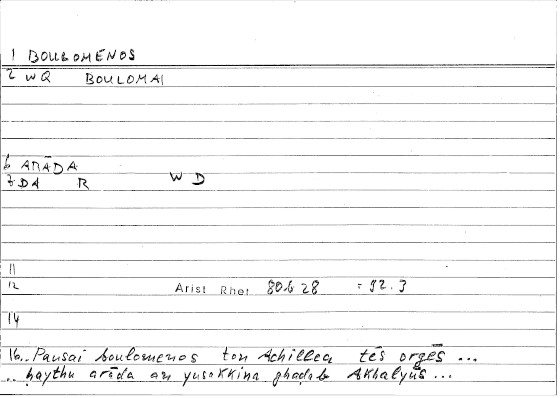 1 BOULOMENOS
2 WQ BOULOMAI
6 ARĀDA
7 DA R W D
11
12 Arist Rhet 80.b 28 = 92.3
14
16.. Pausai boulomenos ton Achillea tēs orgēs ...
.. ḥaythu arāda an yusakkina ghaḍab Akhalyūs ...